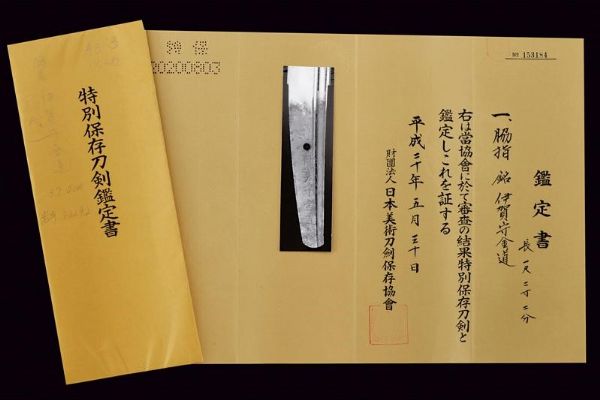 特別保存刀剣鑑定書
特保
20200803
№ 153184
鑑定書
一、脇指 銘 伊賀守金道
長一尺二寸二分
右は當協會に於て審査の結果特別保存刀剣と
鑑定しこれを証する
平成二十年五月三十日
財團法人 日本美術刀剣保存協會